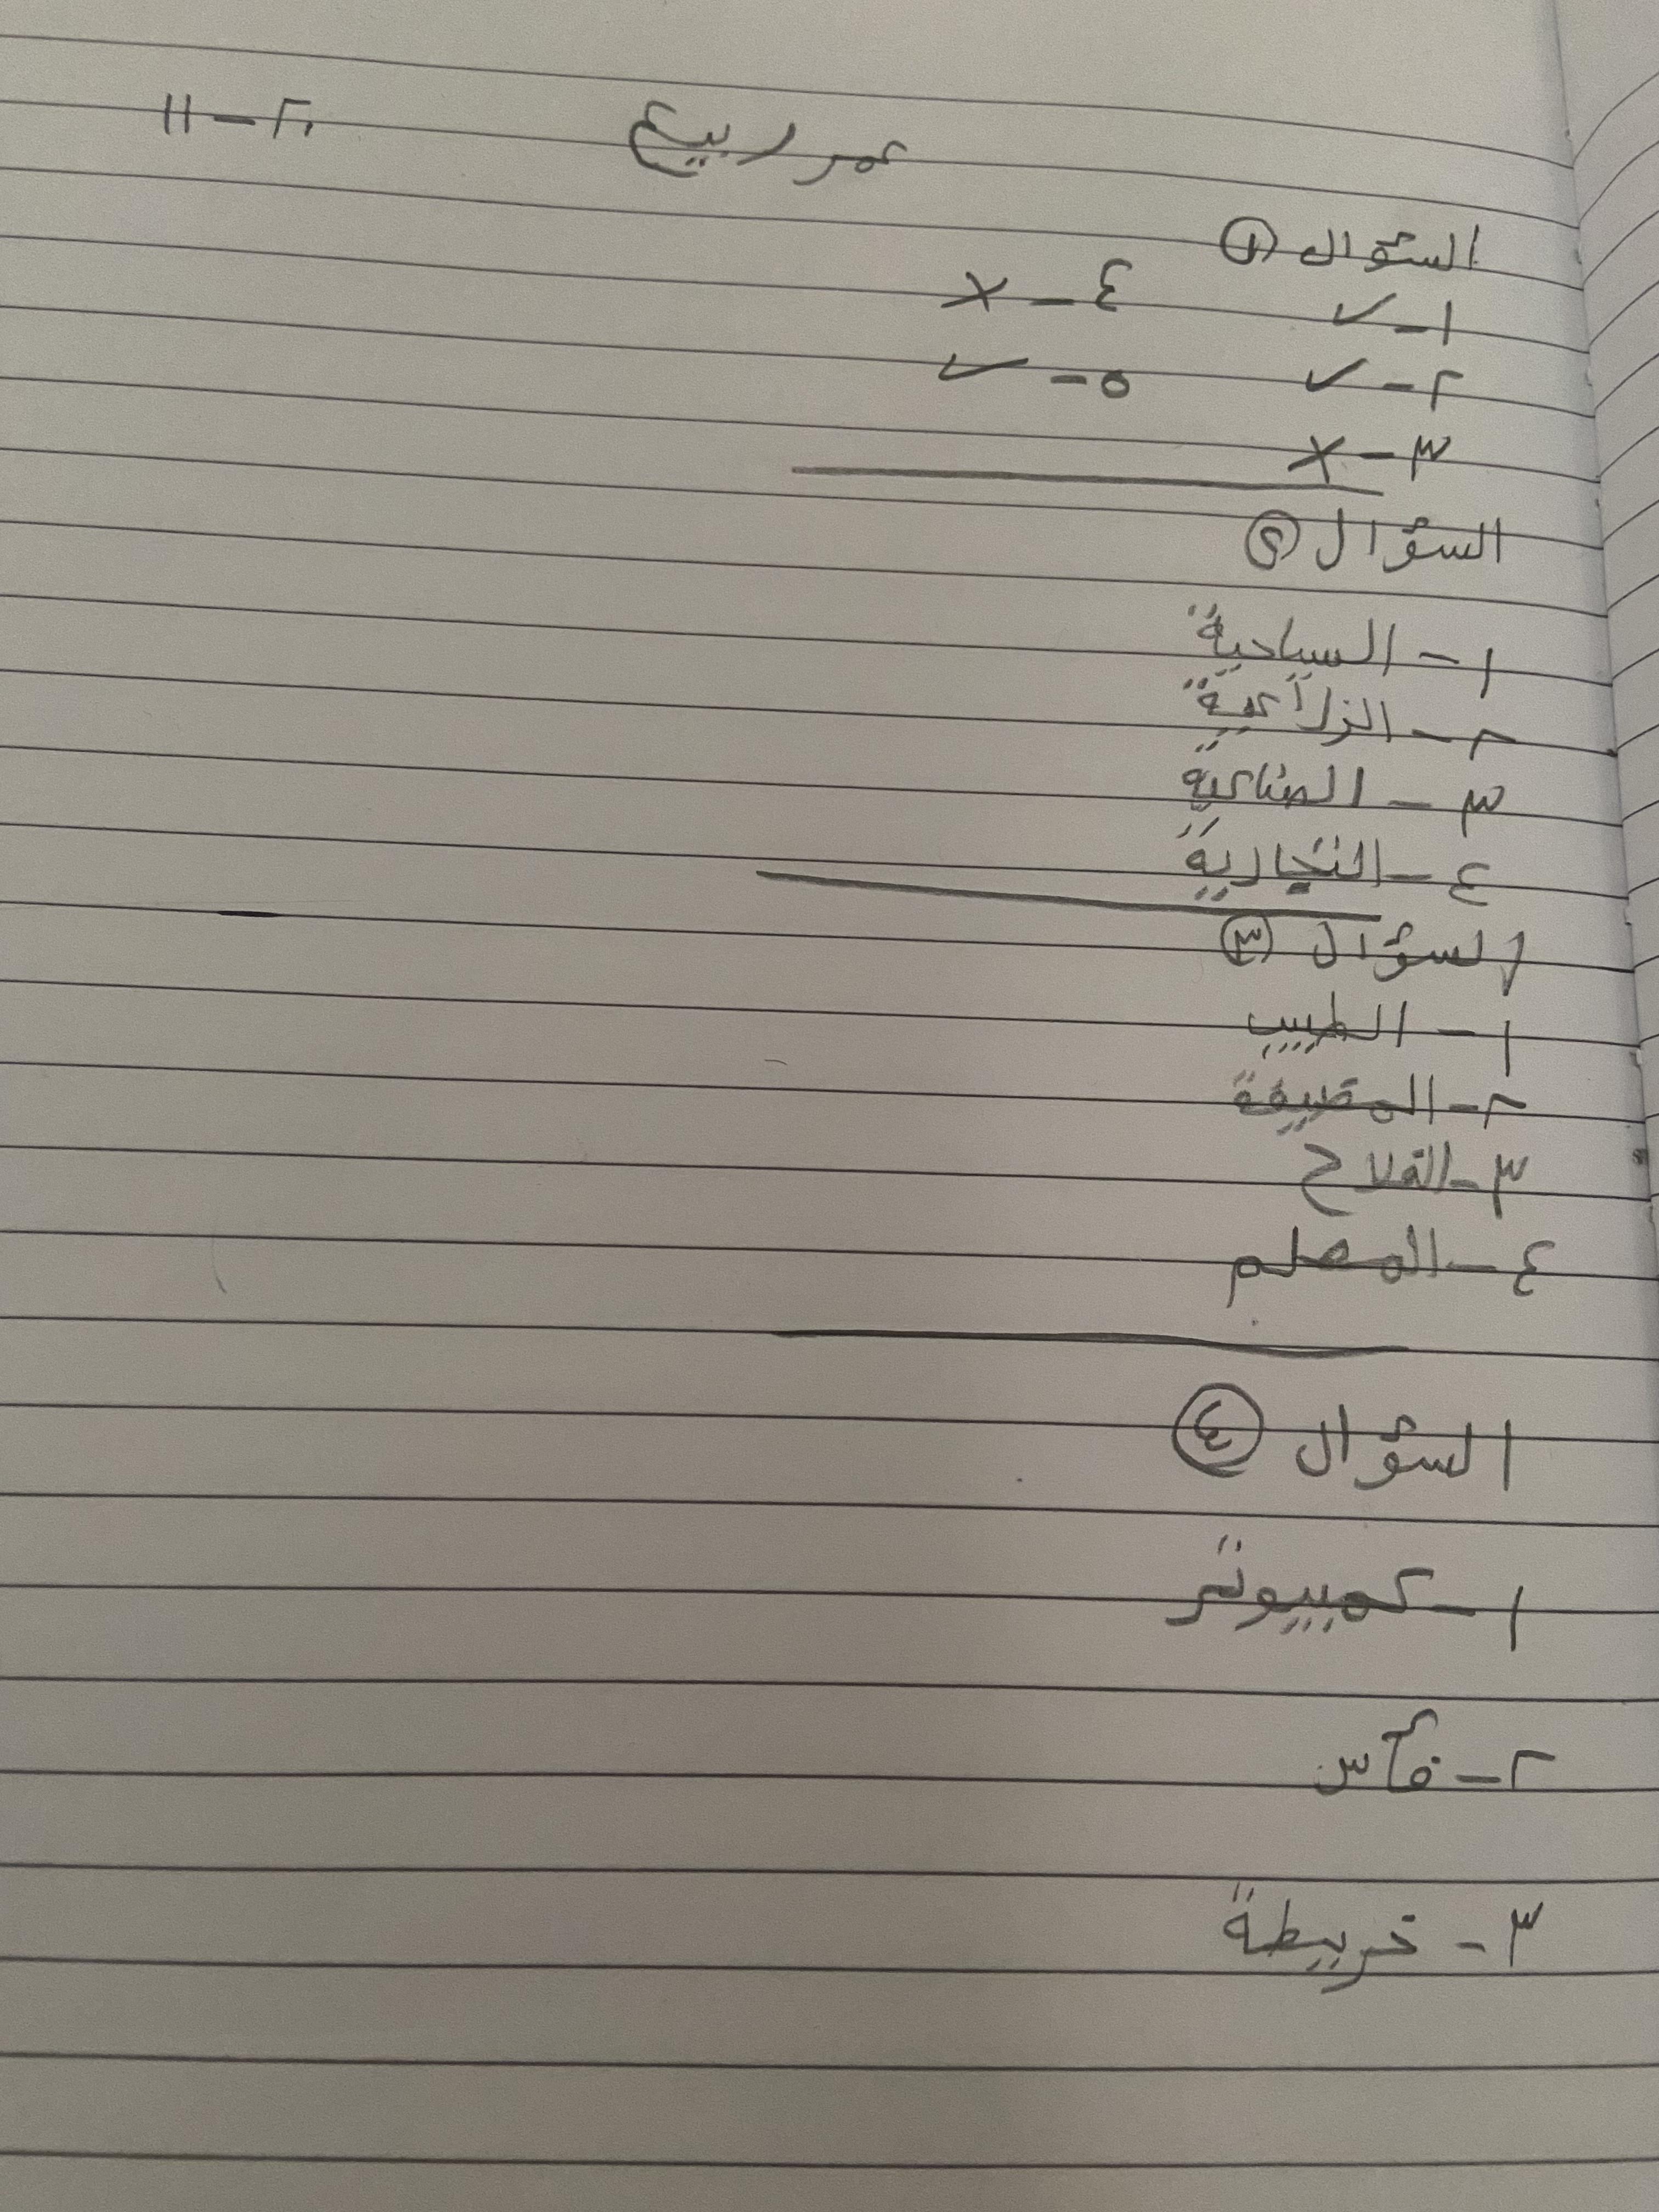 عمر ربيع ٢٠ – ١١
السؤال ١
١- ✓ ٤- ×
٢- ✓ ٥- ✓
٣- ×
السؤال ٢
١- السياحية
٢- الزراعية
٣- الصناعية
٤- التجارية
السؤال ٣
١- الطبيب
٢- المضيفة
٣- الفلاح
٤- المعلم
السؤال ٤
١- كمبيوتر
٢- فأس
٣- خريطة